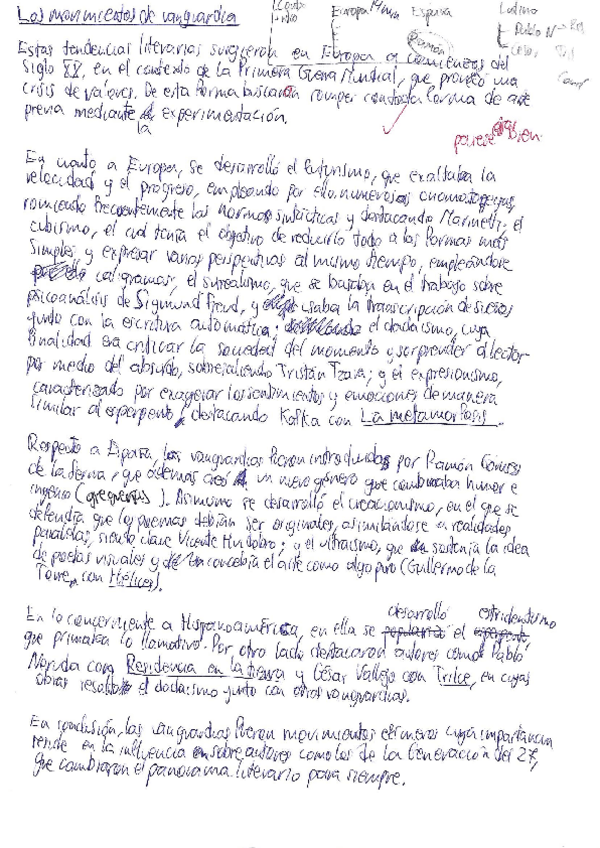 Los movimientos de vanguardia
Europa España Latino
Ramón Pablo N
César
Estas tendencias literarias surgieron en Europa a comienzos del
siglo XX, en el contexto de la Primera Guerra Mundial, que provocó una
crisis de valores. De esta forma buscaron romper con toda forma de arte
previa mediante la experimentación.
parece bien
En cuanto a Europa, se desarrolló el futurismo, que exaltaba la
velocidad y el progreso, empleando por ello numerosas onomatopeyas,
rompiendo frecuentemente las normas sintácticas y destacando Marinetti; el
cubismo, el cual tenía el objetivo de reducirlo todo a las formas más
simples y expresar varias perspectivas al mismo tiempo, empleándose
caligramas; el surrealismo, que se basaba en el trabajo sobre
psicoanálisis de Sigmund Freud, y usaba la transcripción de sueños
junto con la escritura automática; el dadaísmo, cuya
finalidad era criticar la sociedad del momento y sorprender al lector
por medio del absurdo, sobresaliendo Tristán Tzara; y el expresionismo,
caracterizado por exagerar los sentimientos y emociones de manera
similar al esperpento, destacando Kafka con La metamorfosis.
Respecto a España, las vanguardias fueron introducidas por Ramón Gómez
de la Serna, que además creó un nuevo género que combinaba humor e
ingenio (greguerías). Asimismo se desarrolló el creacionismo, en el que se
defendía que los poemas debían ser originales, asimilándose a realidades
paralelas, siendo clave Vicente Huidobro; y el ultraísmo, que sostenía la idea
de poetas visuales y concebía el arte como algo puro (Guillermo de la
Torre, con Hélices).
En lo concerniente a Hispanoamérica, en ella se desarrolló el estridentismo
que primaba lo llamativo. Por otro lado destacaron autores como Pablo
Neruda con Residencia en la tierra y César Vallejo con Trilce, en cuyas
obras resaltó el dadaísmo junto con otras vanguardias.
En conclusión, las vanguardias fueron movimientos efímeros cuya importancia
reside en la influencia sobre autores como los de la Generación del 27,
que cambiaron el panorama literario para siempre.